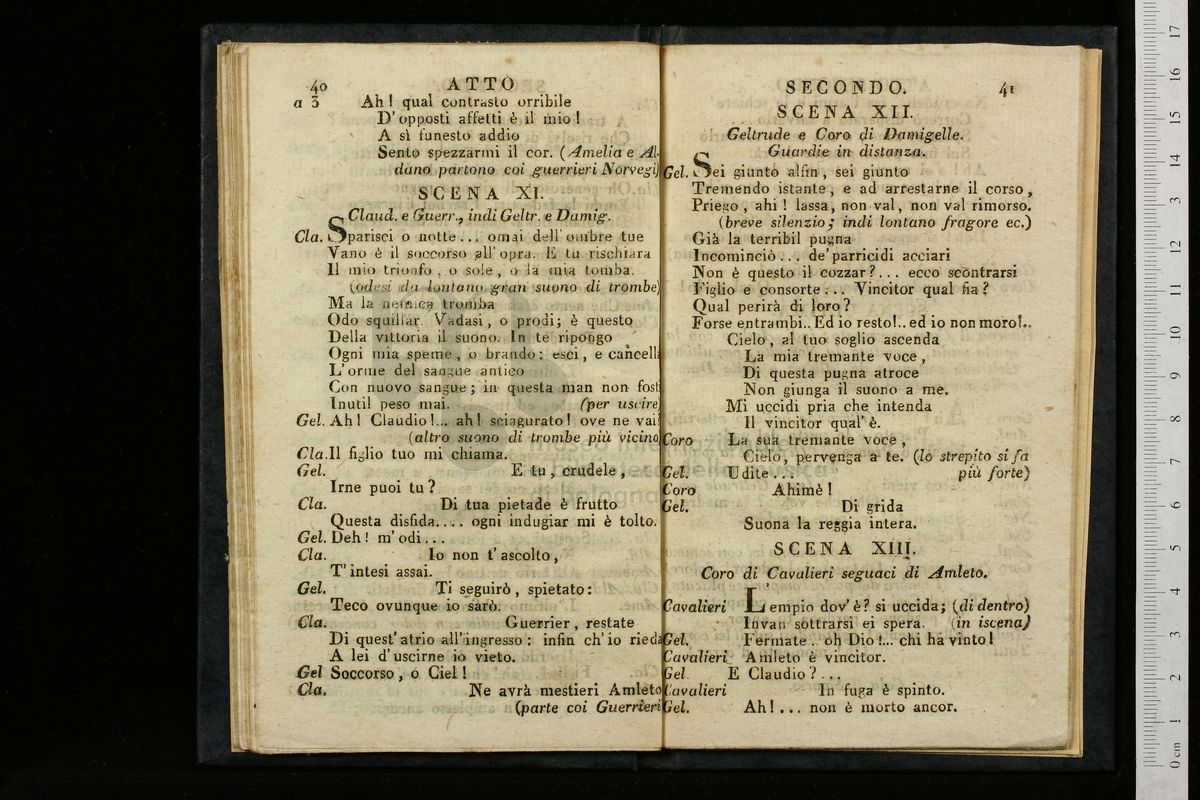 40
ATTO
a 3 Ah! qual contrasto orribile
D' opposti affetti è il mio!
A sì funesto addio
Sento spezzarmi il cor. (Amelia e Al-
dano partono coi guerrieri Norvegi)
SCENA XI.
Claud. e Guerr., indi Geltr. e Damig.
Cla. Sparisci o notte... omai dell' ombre tue
Vano è il soccorso all' opra. E tu rischiara
Il mio trionfo, o sole, o la mia tomba.
(odesi da lontano gran suono di trombe)
Ma la nemica tromba
Odo squillar. Vadasi, o prodi; è questo
Della vittoria il suono. In te ripongo
Ogni mia speme, o brando: esci, e cancella
L' orme del sangue antico
Con nuovo sangue; in questa man non fosti
Inutil peso mai. (per uscire
Gel. Ah! Claudio!... ah! sciagurato! ove ne vai?
(altro suono di trombe più vicino
Cla. Il figlio tuo mi chiama.
Gel. E tu, crudele,
Irne puoi tu?
Cla. Di tua pietade è frutto
Questa disfida.... ogni indugiar mi è tolto.
Gel. Deh! m' odi...
Cla. Io non t' ascolto,
T' intesi assai.
Gel. Ti seguirò, spietato:
Teco ovunque io sarò.
Cla. Guerrier, restate
Di quest' atrio all' ingresso: infin ch' io rieda
A lei d' uscirne io vieto.
Gel Soccorso, o Ciel!
Cla. Ne avrà mestieri Amleto
(parte coi Guerrieri
SECONDO.
41
SCENA XII.
Geltrude e Coro di Damigelle.
Guardie in distanza.
Gel. Sei giunto alfin, sei giunto
Tremendo istante, e ad arrestarne il corso,
Priego, ahi! lassa, non val, non val rimorso.
(breve silenzio; indi lontano fragore ec.)
Già la terribil pugna
Incominciò... de' parricidi acciari
Non è questo il cozzar?... ecco scontrarsi
Figlio e consorte... Vincitor qual fia?
Qual perirà di loro?
Forse entrambi.. Ed io resto!.. ed io non moro!..
Cielo, al tuo soglio ascenda
La mia tremante voce,
Di questa pugna atroce
Non giunga il suono a me.
Mi uccidi pria che intenda
Il vincitor qual' è.
Coro La sua tremante voce,
Cielo, pervenga a te. (lo strepito si fa
Gel. Udite... più forte)
Coro Ahimè!
Gel. Di grida
Suona la reggia intera.
SCENA XIII.
Coro di Cavalieri seguaci di Amleto.
Cavalieri L' empio dov' è? si uccida; (di dentro)
Invan sottrarsi ei spera. (in iscena)
Gel. Fermate.. oh Dio!... chi ha vinto!
Cavalieri Amleto è vincitor.
Gel E Claudio?...
Cavalieri In fuga è spinto.
Gel. Ah!... non è morto ancor.
0 cm 1 2 3 4 5 6 7 8 9 10 11 12 13 14 15 16 17